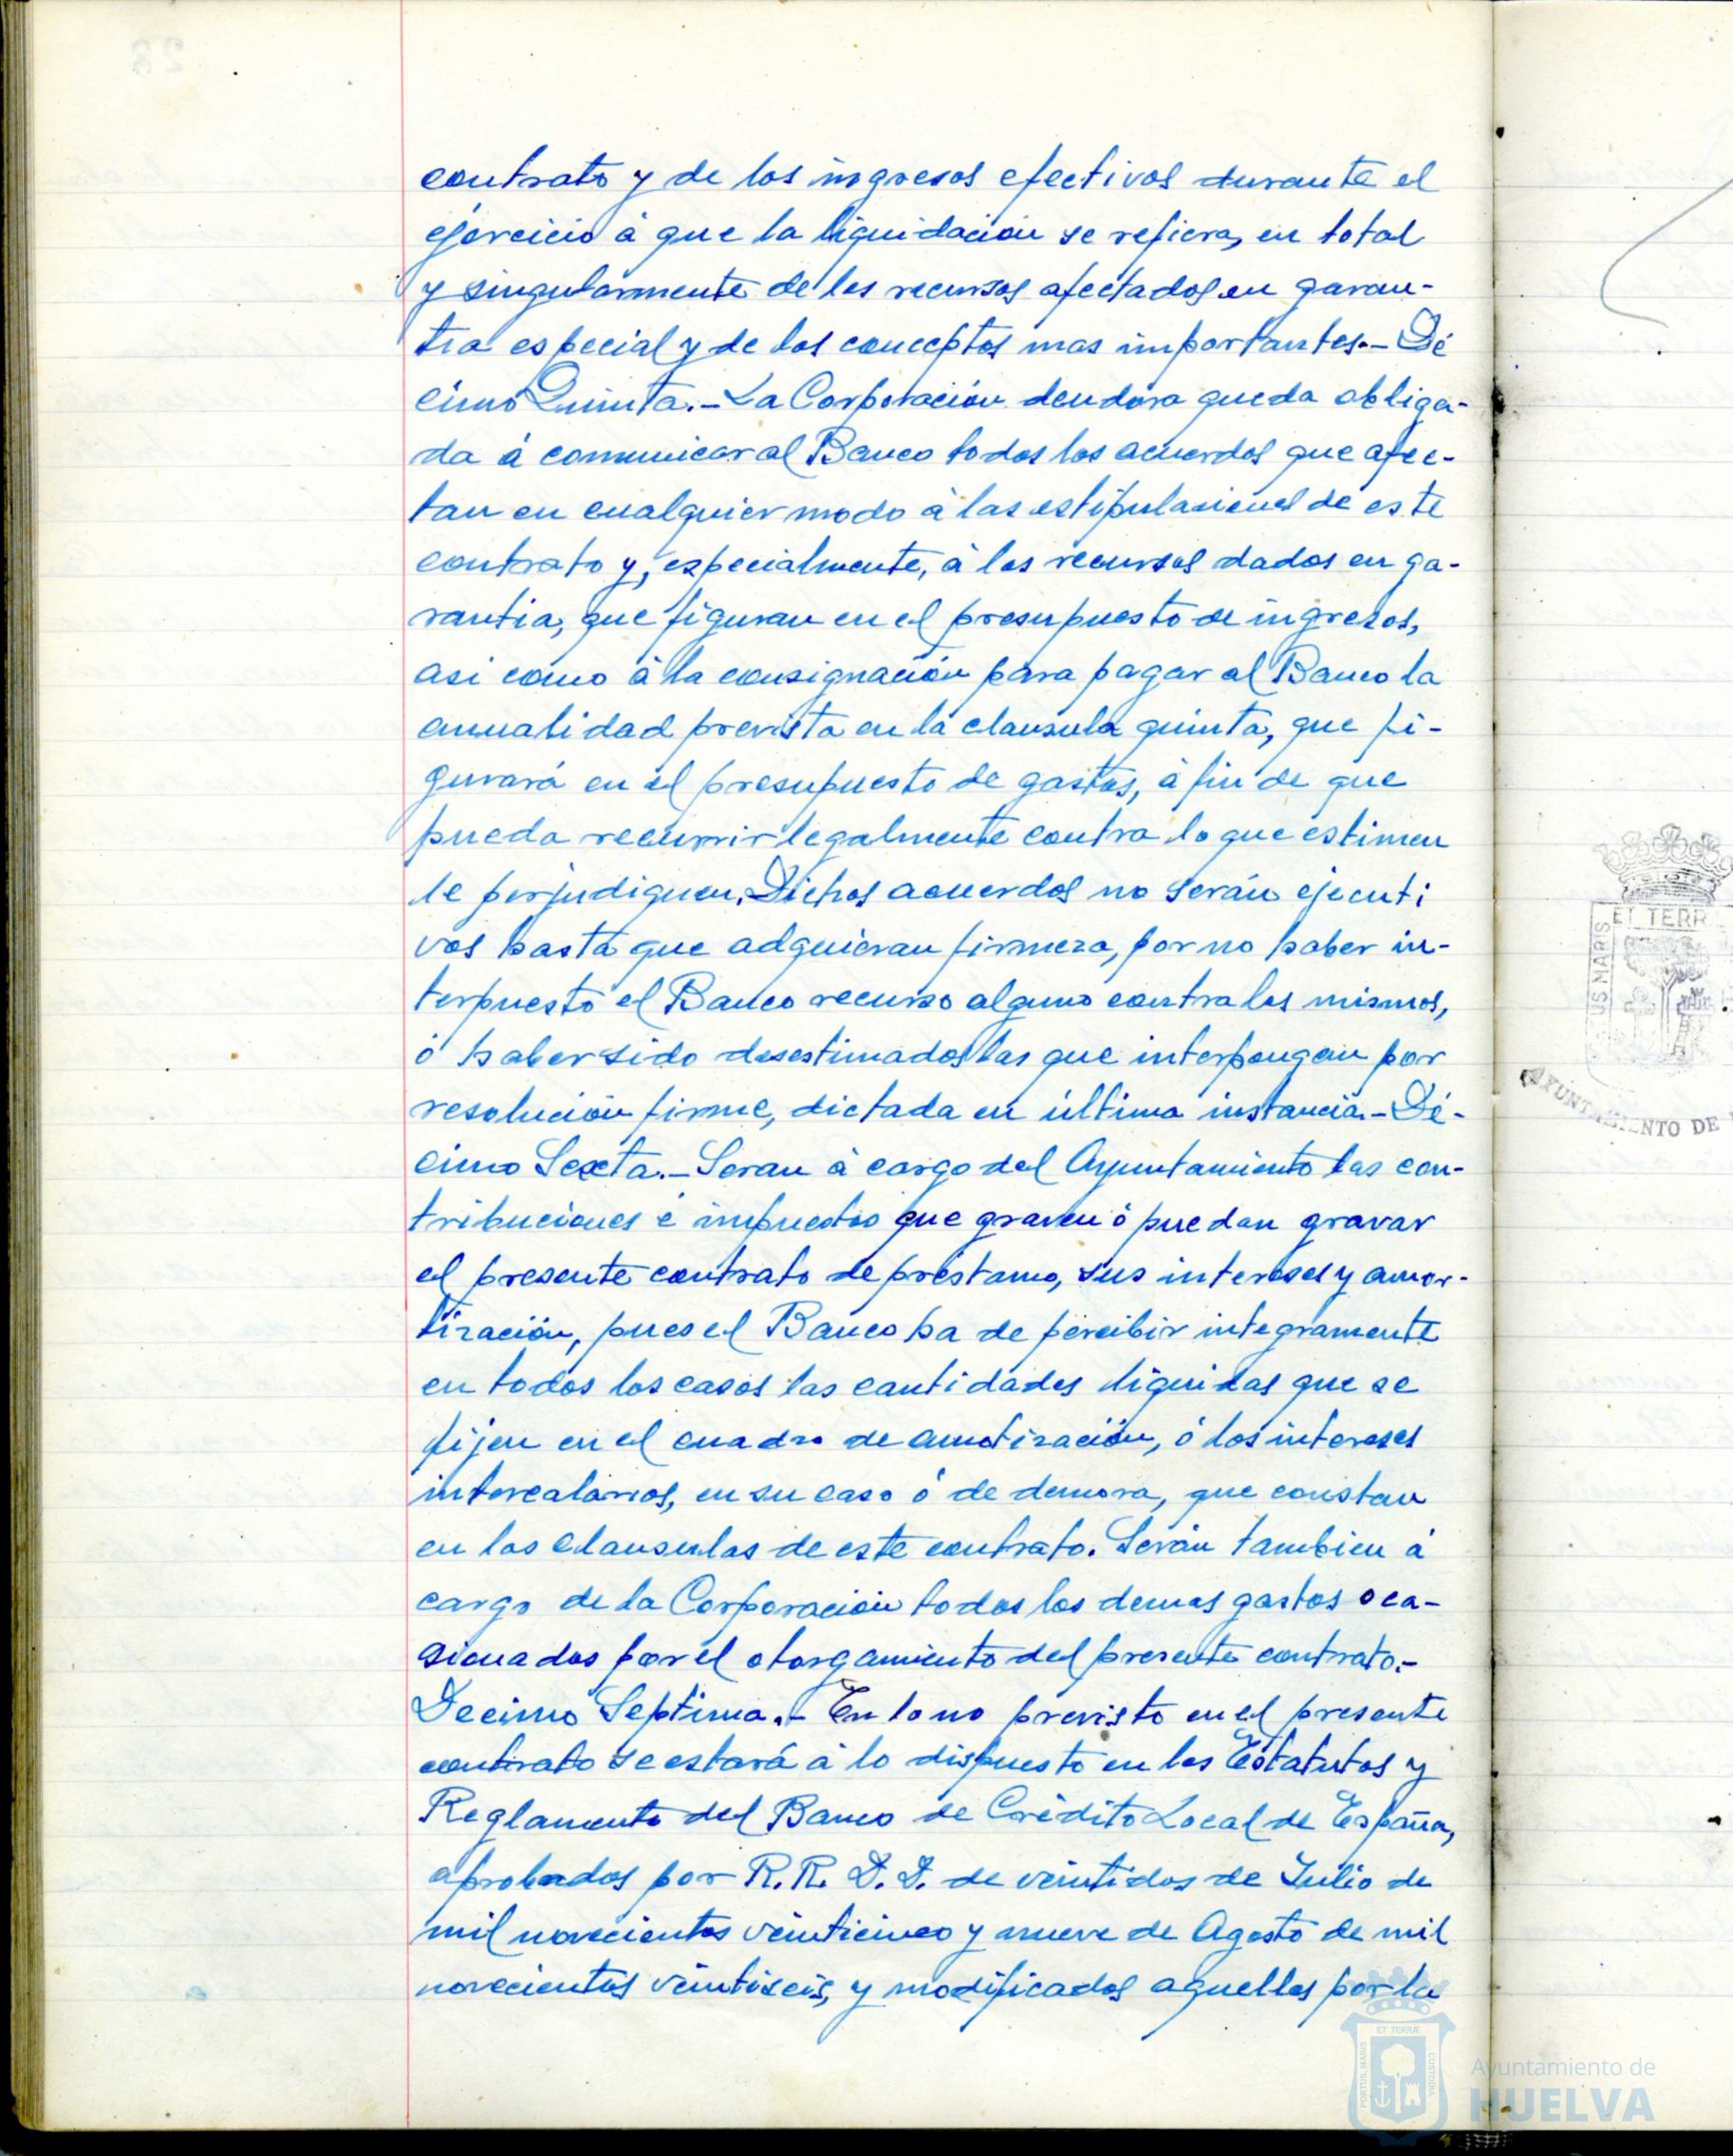 contrato y de los ingresos efectivos durante el
ejercicio á que la liquidación se refiera, en total
y singularmente de los recursos afectados en garan-
tia especial y de los conceptos mas importantes.- Dé
cimo Quinta.- La Corporación deudora queda obliga-
da á comunicar al Banco todos los acuerdos que afec-
tan en cualquier modo á las estipulaciones de este
contrato y, especialmente, á los recursos dados en ga-
rantia, que figuran en el presupuesto de ingresos,
asi como á la consignación para pagar al Banco la
anualidad prevista en la clausula quinta, que fi-
gurará en el presupuesto de gastos, á fin de que
pueda recurrir legalmente contra lo que estimen
le perjudiquen. Dichos acuerdos no serán ejecuti
vos hasta que adquieran firmeza, por no haber in-
terpuesto el Banco recurso alguno contra los mismos,
ó haber sido desestimados los que interpongan por
resolución firme, dictada en última instancia.- Dé-
cimo Sexta.- Seran á cargo del Ayuntamiento las con-
tribuciones é impuestos que graven ó puedan gravar
el presente contrato de préstamo, sus intereses y amor-
tización, pues el Banco ha de percibir integramente
en todos los casos las cantidades liquidas que se
fijen en el cuadro de amotización, ó los intereses
intercalarios, en su caso ó de demora, que constan
en las clausulas de este contrato. Serán tambien á
cargo de la Corporación todos los demas gastos oca-
sionados por el otorgamiento del presente contrato.-
Decimo Septima.- En lo no previsto en el presente
contrato se estará á lo dispuesto en los Estatutos y
Reglamento del Banco de Crédito Local de España,
aprobados por R.R. D.D. de veintidos de Julio de
mil novecientos veinticinco y nueve de Agosto de mil
novecientos veintiseis, y modificados aquellos por la
ET TERR
US MARIS
AYUNTAMIENTO DE
ET TERRÆ
PORTUS MARIS
CUSTODIA
Ayuntamiento de
HUELVA